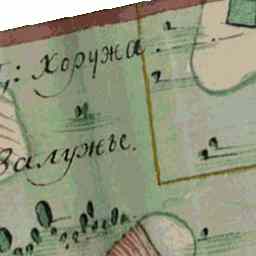 : Хоружа .
Залужье.